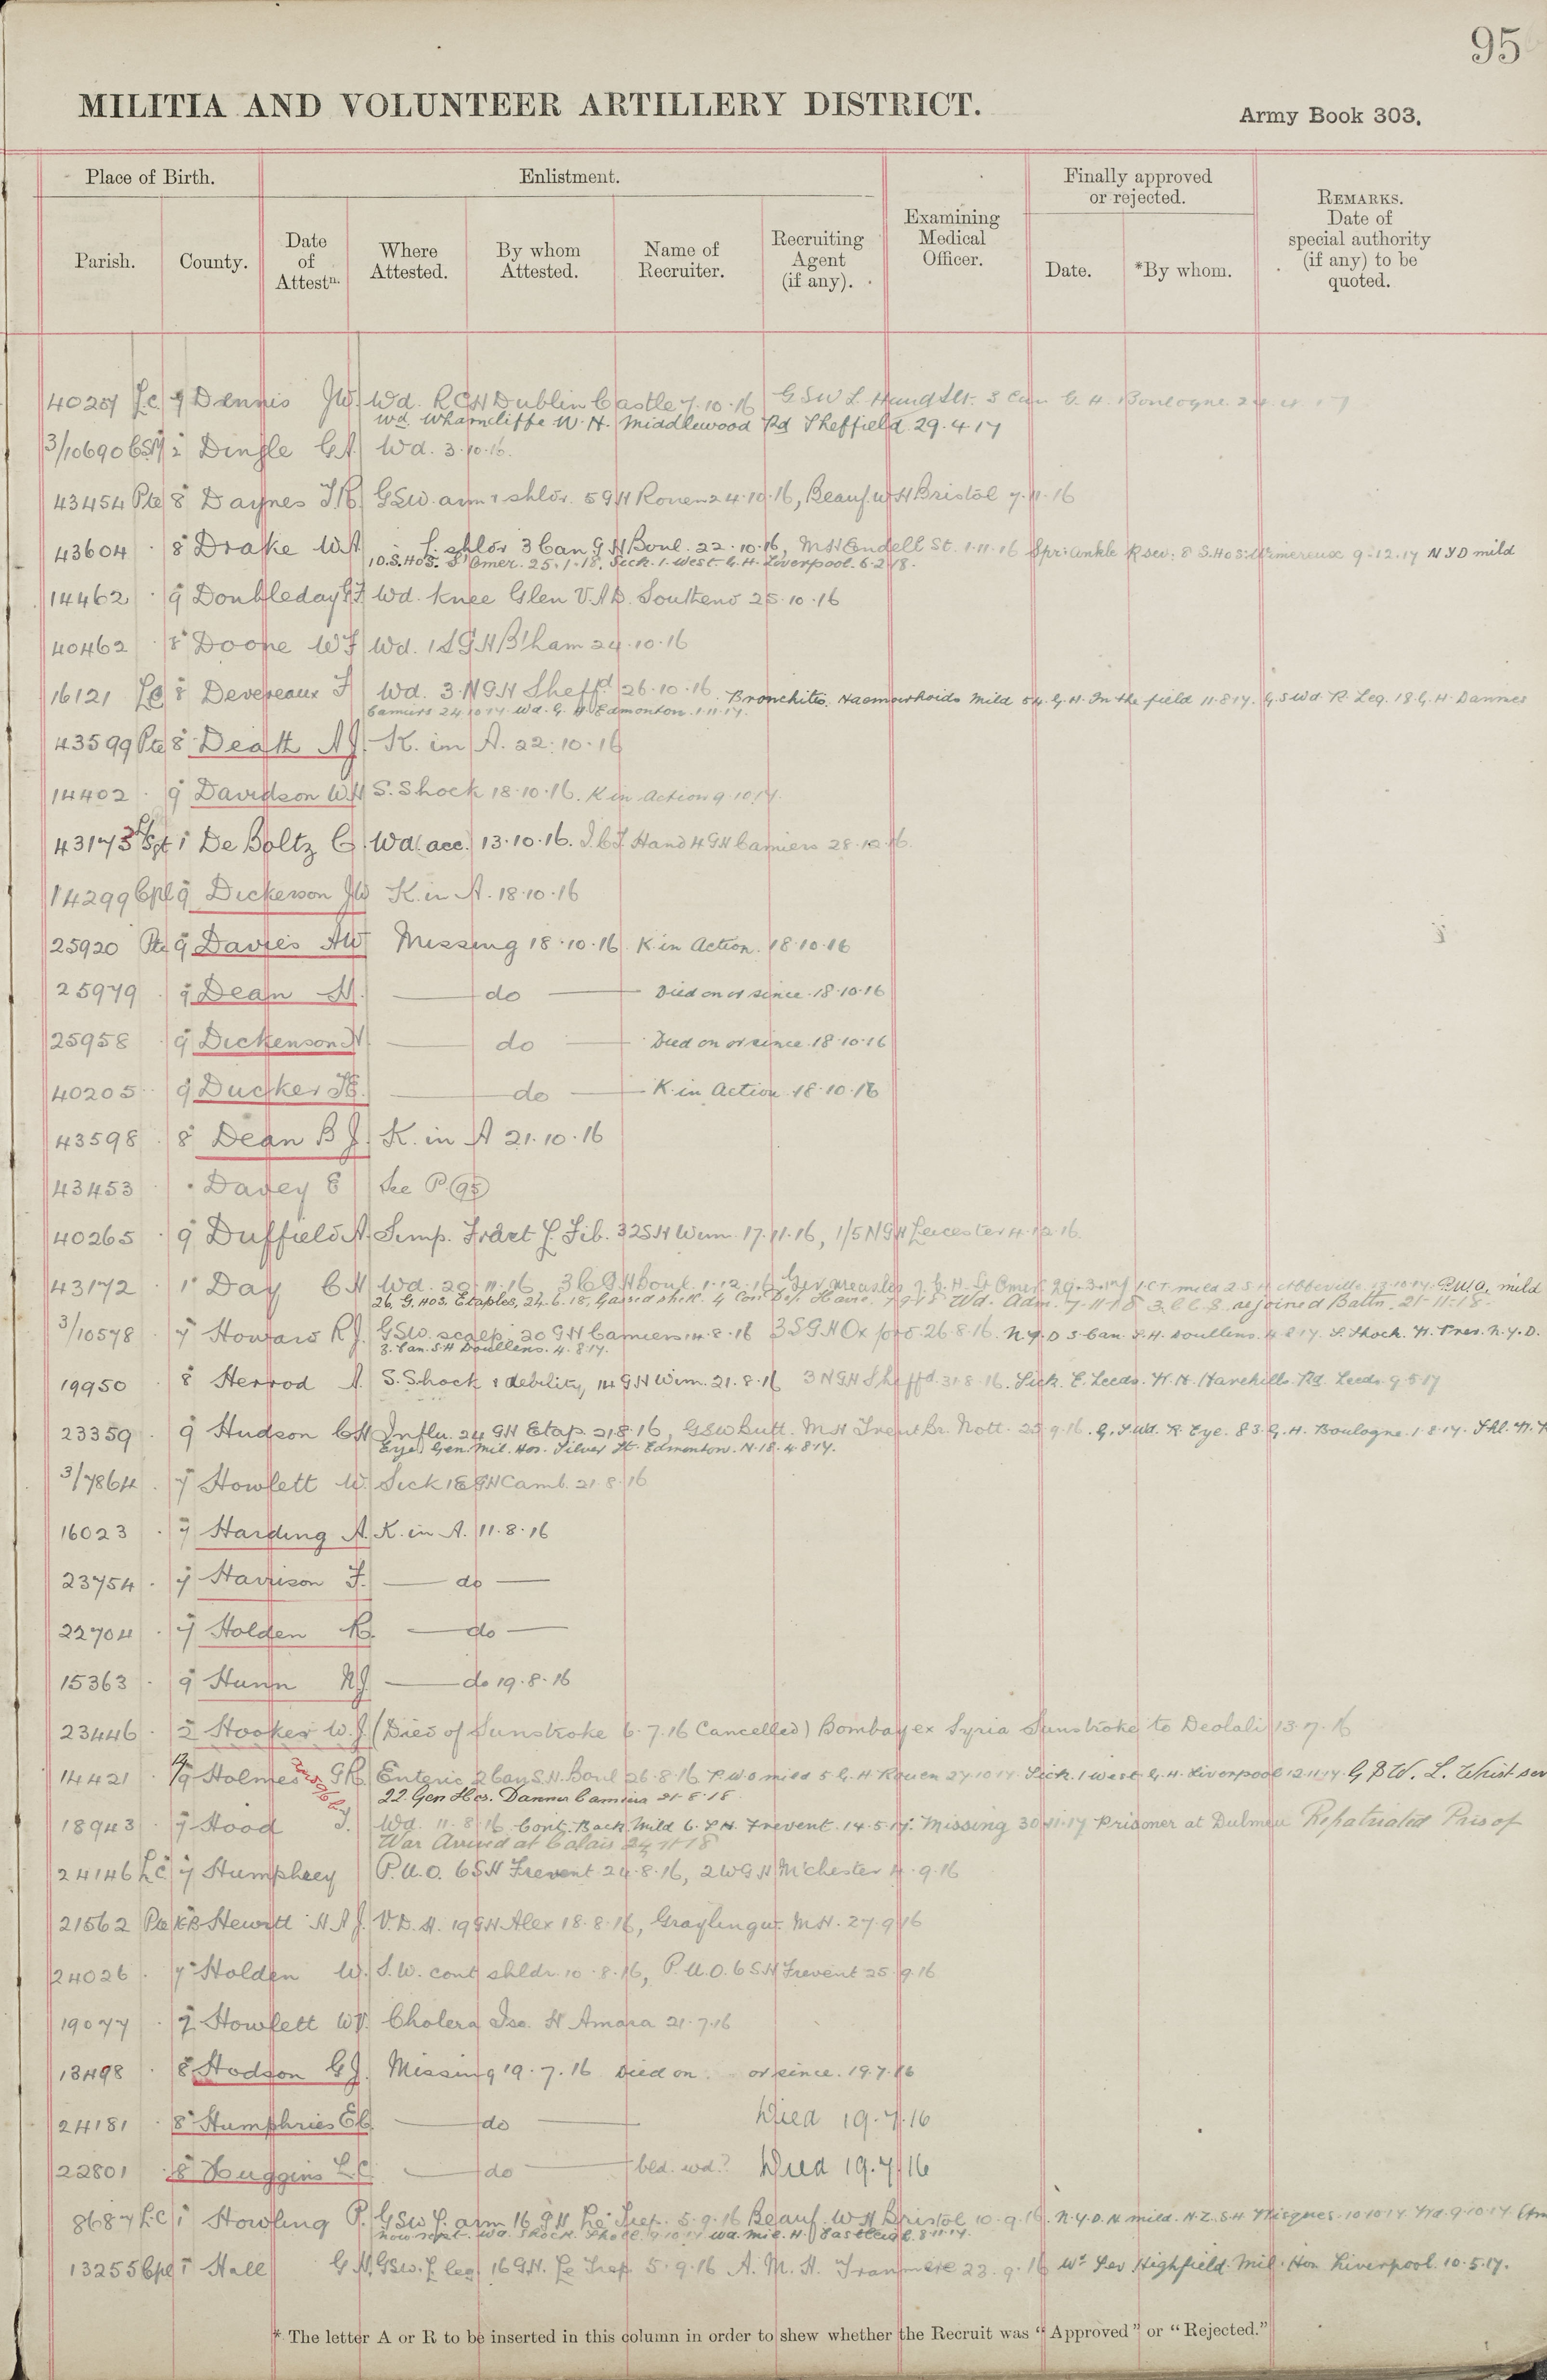 95
MILITIA AND VOLUNTEER ARTILLERY DISTRICT.
Army Book 303.
Place of Birth.
Enlistment.
Examining Medical Officer.
Finally approved or rejected.
REMARKS. Date of special authority (if any) to be quoted.
Parish.
County.
Date of Attestn.
Where Attested.
By whom Attested.
Name of Recruiter.
Recruiting Agent (if any).
Date.
*By whom.
40257 Lc 7 Dennis JW. Wd. RCH Dublin Castle 7.10.16 GSW L Hand Slt. 3 Can G.H. Boulogne 24.4.17
Wd. Wharncliffe W.H. Middlewood Rd Sheffield 29.4.17
3/10690 CSM 2 Dingle GA Wd. 3.10.16.
43454 Pte 8 Daynes GSW. arm & shldr. 5GH Rouen 24.10.16, Beauf. WH Bristol 7.11.16
43604 . 8 Drake WA L. shldr 3 Can GH Boul. 22.10.16, MH Endell St. 1.11.16 Spr: Ankle R sev: 8 S.Hos: Wimereux 9.12.17 NYD mild
10.S.Hos. St Omer. 25.1.18. Sick. 1. West. G.H. Liverpool. 6.2.18.
14462 . 9 Doubleday Wd. Knee Glen V.A.D. Southend 25.10.16
40462 . 8 Doone WF Wd. 1SGH B'ham 24.10.16
16121 Lc 8 Devereaux F Wd. 3.NGH Sheffd 26.10.16. Bronchitis, Haemorrhoids Mild 54.G.H. In the field 11.8.17. G.S Wd. R. Leg. 18.G.H. Dannes
Camiers 24.10.17. Wd. G. H. Edmonton. 1.11.17.
43599 Pte 8 Death AJ. K. in A. 22.10.16
14402 . 9 Davidson WH S. Shock 18.10.16. K in Action 9.10.17.
43173 Sgt 1 De Boltz C. Wd (acc.) 13.10.16. I.C.T. Hand 4GH Camiers 28.12.16.
14299 Cpl 9 Dickerson JW K. in A. 18.10.16
25920 Pte 9 Davies AW Missing 18.10.16. K in Action. 18.10.16
25979 . 9 Dean H. do Died on or since 18.10.16
25958 9 Dickenson H do Died on or since 18.10.16
40205 9 Ducker do K. in Action 18.10.16
43598 . 8 Dean BJ. K. in A 21.10.16
43453 . Davey E See P. 95
40265 . 9 Duffield A. Simp. Fract L. Fib. 32SH Wim. 17.11.16, 1/5 NGH Leicester 4.12.16.
43172 . 1 Day CH Wd. 20.11.16 3CGH Boul. 1.12.16 Ger measles 7.G.H. St Omer I.C.T. mild 2.S.H Abbeville 13.10.17. P.U.O. mild
26. G. Hos. Etaples, 24.6.18, Gassed shell. 4 Con Dep. Havre. 7.9.18 Wd. Adm. 7.11.18 3.C.C.S. rejoined Battn. 21-11-18.
3/10578 7 Howard RJ. GSW. scalp. 20 GH Camiers 14.8.16 3SGH Oxford. 26.8.16. N.Y.D 3 Can. S.H. Doullens. 4.8.17. S. Shock. H. Prev. N.Y.D.
3. Can. S.H Doullens. 4.8.17.
19950 8 Herrod A. S. Shock & debility, 14 GH Wim. 21.8.16 3NGH Sheffd. 31.8.16. Sick. E. Leeds. W.H. Harehills. Rd. Leeds. 9.5.17
23359 . 9 Hudson CH Influ. 24 GH Etap. 21.8.16, GSW butt. MH Trent Br. Nott. 25.9.16. G.S.Wd. R. Eye. 83.G.H. Boulogne. 1.8.17.
Eye. Gen. Mil. Hos. Silver St. Edmonton. N.18. 4.8.17.
3/7864 . 7 Howlett W. Sick 1EGH Camb. 21.8.16
16023 . 7 Harding A. K. in A. 11.8.16
23754 . 7 Harrison F. do
22704 . 7 Holden R. do
15363 . 9 Hunn NJ do 19.8.16
23446 . 2 Hooker W.J. (Died of Sunstroke 6.7.16 Cancelled) Bombay ex Syria Sunstroke to Deolali 13.7.16
14421 9 Holmes GR Enteric 2 Can S.H. Boul 26.8.16 P.U.O mild 5 G.H Rouen 27.10.17 Sick. 1 West. G.H. Liverpool 12.11.17. G.S.W. L. Whist sev
22 Gen Hos. Dannes Camiers 21.8.18
18943 . 7 Hood J. Wd. 11.8.16. Cont. Back Mild 6.S.H. Frevent. 14.5.17. Missing 30.11.17 Prisoner at Dulmen Repatriated Pris of
War Arrived at Calais 24.11.18
24146 Lc 7 Humphrey P.U.O. 6SH Frevent 24.8.16, 2WGH M'chester 4.9.16
21562 Pte Hewitt HAJ. V.D.H. 19GH Alex 18.8.16, Graylingwl MH. 27.9.16
24026 . 7 Holden W. S.W. cont shldr. 10.8.16, P.U.O. 6SH Frevent 25.9.16
19077 . 2 Howlett W. Cholera Iso. H Amara 21.7.16
13498 . 8 Hodson GJ. Missing 19.7.16 Died on or since. 19.7.16
24181 . 8 Humphries EC do Died 19.7.16
22801 . 8 Huggins LC. do bld. wd.? Died 19.7.16
8687 Lc 1 Howling P. GSW L. arm 16 GH Le Trep. 5.9.16 Beauf. WH Bristol 10.9.16. N.Y.D.N mild. N.Z. S.H. Wisques. 10.10.17. Wd. 9.10.17
now sept. Wd. Shock. Shell. 9.10.17 Wd. Mil. H. Eastleigh. 8.11.17.
13255 Cpl 1 Hall G.H. GSW. L leg 16GH. Le Trep. 5.9.16 A.M.H. Tranmere 23.9.16 Highfield. Mil. Hos Liverpool. 10.5.17.
* The letter A or R to be inserted in this column in order to shew whether the Recruit was “Approved” or “Rejected.”